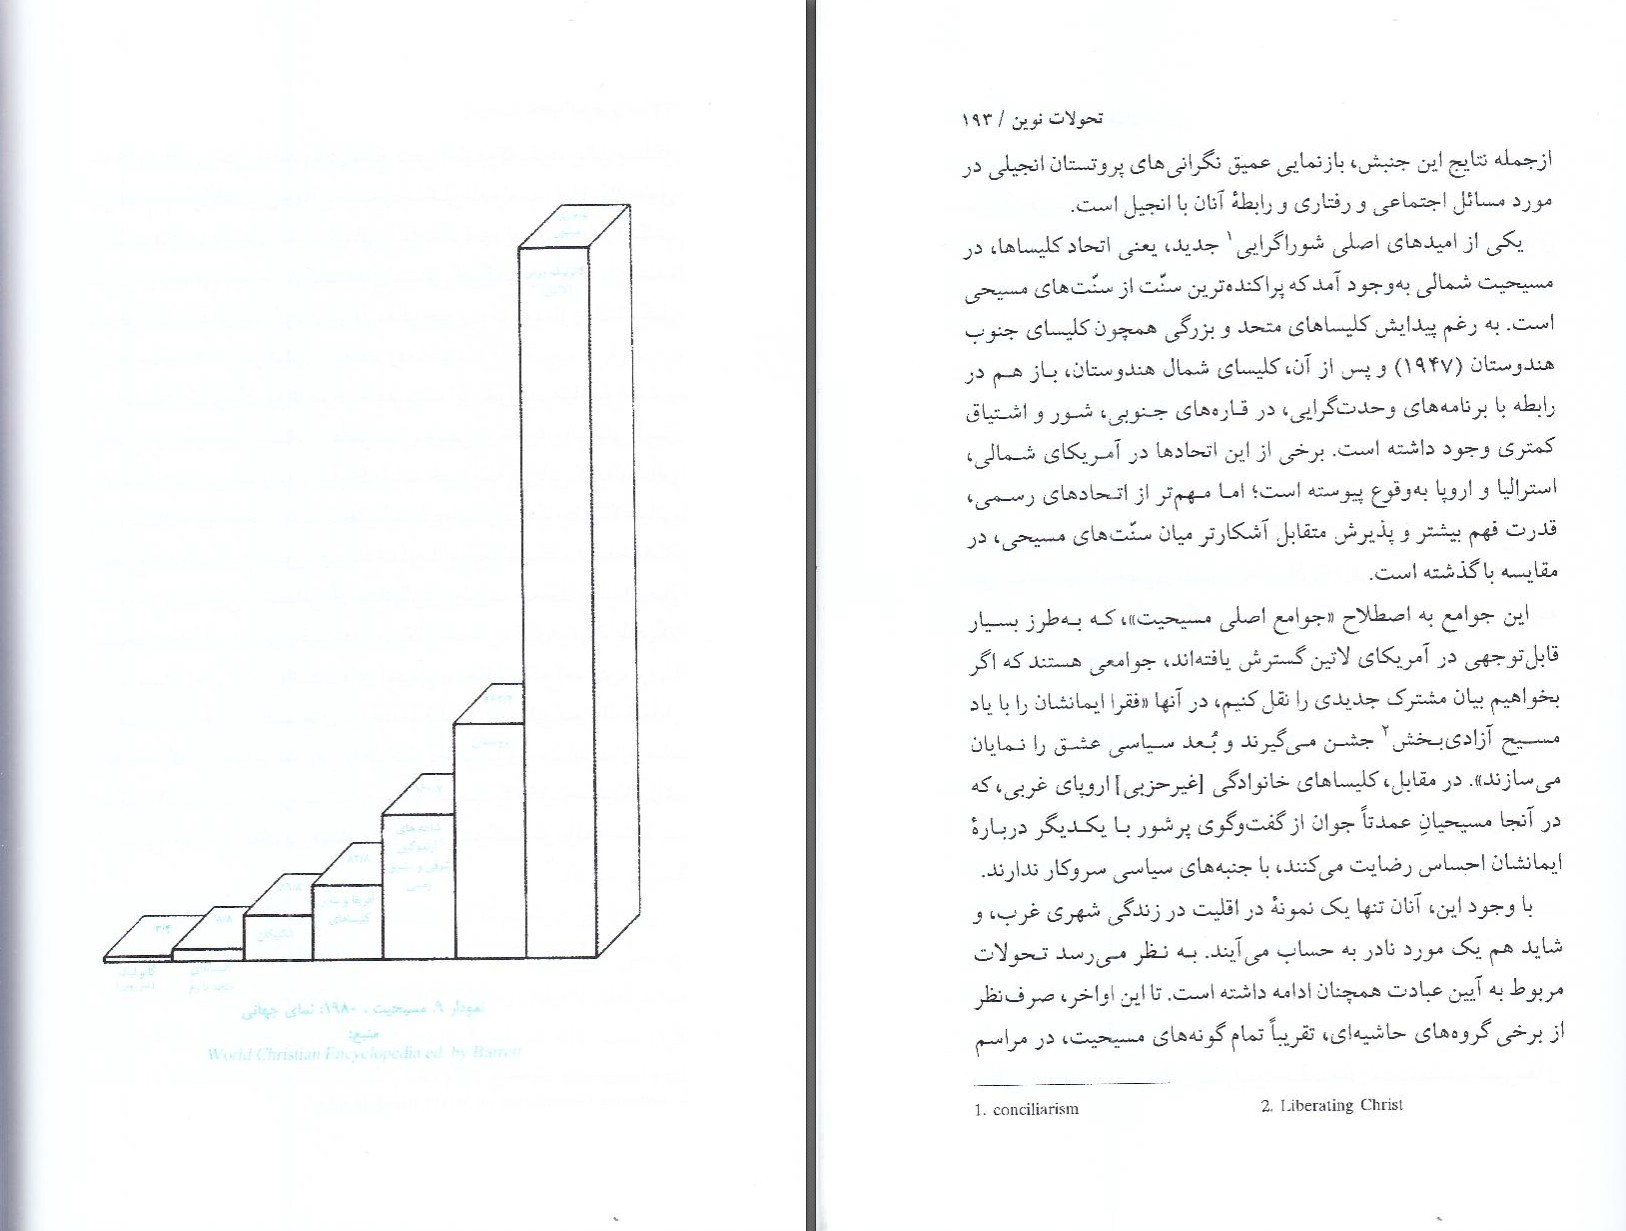 تحولات نوین / ۱۹۳
ازجمله نتایج این جنبش، بازنمایی عمیق نگرانی‌های پروتستان انجیلی در
مورد مسائل اجتماعی و رفتاری و رابطهٔ آنان با انجیل است.
یکی از امیدهای اصلی شوراگرایی۱ جدید، یعنی اتحاد کلیساها، در
مسیحیت شمالی به‌وجود آمد که پراکنده‌ترین سنّت از سنّت‌های مسیحی
است. به رغم پیدایش کلیساهای متحد و بزرگی همچون کلیسای جنوب
هندوستان (۱۹۴۷) و پس از آن، کلیسای شمال هندوستان، باز هم در
رابطه با برنامه‌های وحدت‌گرایی، در قاره‌های جنوبی، شور و اشتیاق
کمتری وجود داشته است. برخی از این اتحادها در آمریکای شمالی،
استرالیا و اروپا به‌وقوع پیوسته است؛ اما مهم‌تر از اتحادهای رسمی،
قدرت فهم بیشتر و پذیرش متقابل آشکارتر میان سنّت‌های مسیحی، در
مقایسه با گذشته است.
این جوامع به اصطلاح «جوامع اصلی مسیحیت»، که به‌طرز بسیار
قابل‌توجهی در آمریکای لاتین گسترش یافته‌اند، جوامعی هستند که اگر
بخواهیم بیان مشترک جدیدی را نقل کنیم، در آنها «فقرا ایمانشان را با یاد
مسیح آزادی‌بخش۲ جشن می‌گیرند و بُعد سیاسی عشق را نمایان
می‌سازند». در مقابل، کلیساهای خانوادگی [غیرحزبی] اروپای غربی، که
در آنجا مسیحیانِ عمدتاً جوان از گفت‌وگوی پرشور با یکدیگر دربارهٔ
ایمانشان احساس رضایت می‌کنند، با جنبه‌های سیاسی سروکار ندارند.
با وجود این، آنان تنها یک نمونهٔ در اقلیت در زندگی شهری غرب، و
شاید هم یک مورد نادر به حساب می‌آیند. به نظر می‌رسد تحولات
مربوط به آیین عبادت همچنان ادامه داشته است. تا این اواخر، صرف‌نظر
از برخی گروه‌های حاشیه‌ای، تقریباً تمام گونه‌های مسیحیت، در مراسم
1. conciliarism 2. Liberating Christ
پروتستان
انگلیکان
کاتولیک
نمودار ۹. مسیحیت، ۱۹۸۰: نمای جهانی
منبع:
World Christian Encyclopedia ed. by Barrett